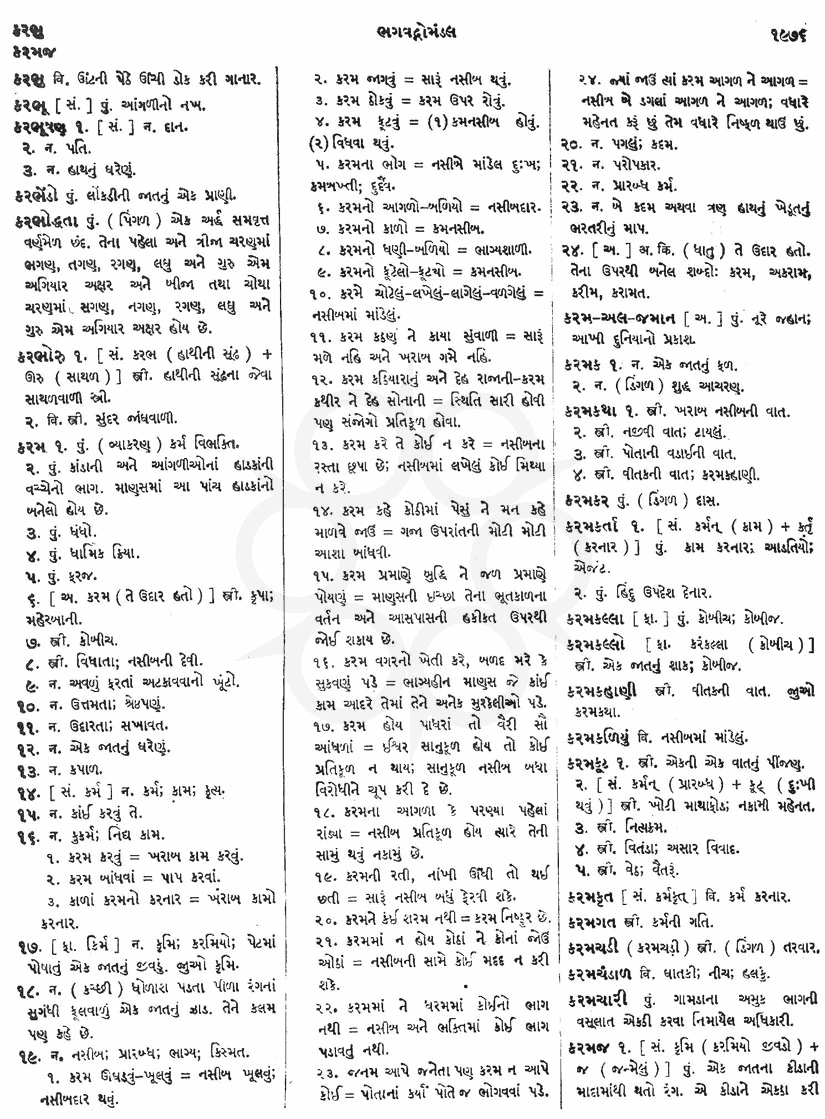 કરભુ
કરમજ
ભગવદ્ગોમંડલ
૧૯૭૬
કરભુ વિ. ઊંટની પેઠે ઊંચી ડોક કરી ગાનાર.
કરભૂ [ સં. ] પું. આંગળીનો નખ.
કરભૂષણ ૧. [ સં. ] ન. દાન.
૨. ન. પતિ.
૩. ન. હાથનું ઘરેણું.
કરભેંડો પું. લોંકડીની જાતનું એક પ્રાણી.
કરભોદ્ધતા પું. ( પિંગળ ) એક અર્દ્ધ સમવૃત્ત
વર્ણમેળ છંદ. તેના પહેલા અને ત્રીજા ચરણમાં
ભગણ, તગણ, રગણ, લઘુ અને ગુરુ એમ
અગિયાર અક્ષર અને બીજા તથા ચોથા
ચરણમાં સગણ, નગણ, રગણ, લઘુ અને
ગુરુ એમ અગિયાર અક્ષર હોય છે.
કરભોરુ ૧. [ સં. કરભ ( હાથીની સૂંઢ ) +
ઊરુ ( સાથળ ) ] સ્ત્રી. હાથીની સૂંઢના જેવા
સાથળવાળી સ્ત્રી.
૨. વિ. સ્ત્રી. સુંદર જાંઘવાળી.
કરમ ૧. પું. ( વ્યાકરણ ) કર્મ વિભક્તિ.
૨. પું. કાંડાની અને આંગળીઓનાં હાડકાંની
વચ્ચેનો ભાગ. માણસમાં આ પાંચ હાડકાંનો
બનેલો હોય છે.
૩. પું. ધંધો.
૪. પું. ધાર્મિક ક્રિયા.
૫. પું. ફરજ.
૬. [ અ. કરમ ( તે ઉદાર હતો ) ] સ્ત્રી. કૃપા;
મહેરબાની.
૭. સ્ત્રી. કોબીચ.
૮. સ્ત્રી. વિધાતા; નસીબની દેવી.
૯. ન. અવળું ફરતાં અટકાવવાનો ખૂંટો.
૧૦. ન. ઉત્તમતા; શ્રેષ્ઠપણું.
૧૧. ન. ઉદારતા; સખાવત.
૧૨. ન. એક જાતનું ઘરેણું.
૧૩. ન. કપાળ.
૧૪. [ સં. કર્મ ] ન. કર્મ; કામ; કૃત્ય.
૧૫. ન. કાંઈ કરવું તે.
૧૬. ન. કુકર્મ; નિંદ્ય કામ.
૧. કરમ કરવું = ખરાબ કામ કરવું.
૨. કરમ બાંધવાં = પાપ કરવાં.
૩. કાળાં કરમનો કરનાર = ખરાબ કામો
કરનાર.
૧૭. [ ફા. કિર્મ ] ન. કૃમિ; કરમિયો; પેટમાં
પોષાતું એક જાતનું જીવડું. જુઓ કૃમિ.
૧૮. ન. ( કચ્છી ) ધોળારા પડતા પીળા રંગનાં
સુગંધી ફૂલવાળું એક જાતનું ઝાડ. તેને કલમ
પણ કહે છે.
૧૯. ન. નસીબ; પ્રારબ્ધ; ભાગ્ય; કિસ્મત.
૧. કરમ ઊઘડવું-ખૂલવું = નસીબ ખૂલવું;
નસીબદાર થવું.
૨. કરમ જાગવું = સારું નસીબ થવું.
૩. કરમ ઠોકવું = કરમ ઉપર રોવું.
૪. કરમ ફૂટવું = (૧) કમનસીબ હોવું.
(૨) વિધવા થવું.
૫. કરમના ભોગ = નસીબે માંડેલ દુઃખ;
કમબખ્તી; દુર્દૈવ.
૬. કરમનો આગળો-બળિયો = નસીબદાર.
૭. કરમનો કાળો = કમનસીબ.
૮. કરમનો ધણી-બળિયો = ભાગ્યશાળી.
૯. કરમનો ફૂટેલો-ફૂટ્યો = કમનસીબ.
૧૦. કરમે ચોટેલું-લખેલું-લાગેલું-વળગેલું =
નસીબમાં માંડેલું.
૧૧. કરમ કઠણ ને કાયા સુંવાળી = સારું
મળે નહિ અને ખરાબ ગમે નહિ.
૧૨. કરમ કડિયારાનું અને દેહ રાજાની-કરમ
કથીર ને દેહ સોનાની = સ્થિતિ સારી હોવી
પણ સંજોગો પ્રતિકૂળ હોવા.
૧૩. કરમ કરે તે કોઈ ન કરે = નસીબના
રસ્તા છૂપા છે; નસીબમાં લખેલું કોઈ મિથ્યા
ન કરે.
૧૪. કરમ કહે કોઠીમાં પેસું ને મન કહે
માળવે જાઉં = ગજા ઉપરાંતની મોટી મોટી
આશા બાંધવી.
૧૫. કરમ પ્રમાણે બુદ્ધિ ને જળ પ્રમાણે
પોયણું = માણસની ઇચ્છા તેના ભૂતકાળના
વર્તન અને આસપાસની હકીકત ઉપરથી
જોઈ શકાય છે.
૧૬. કરમ વગરનો ખેતી કરે, બળદ મરે કે
સુકવણું પડે = ભાગ્યહીન માણસ જે કાંઈ
કામ આદરે તેમાં તેને અનેક મુશ્કેલીઓ પડે.
૧૭. કરમ હોય પાધરાં તો વૈરી સૌ
આંધળાં = ઈશ્વર સાનુકૂળ હોય તો કોઈ
પ્રતિકૂળ ન થાય; સાનુકૂળ નસીબ બધા
વિરોધીને ચૂપ કરી દે છે.
૧૮. કરમના આગળા કે પરણ્યા પહેલાં
રાંડ્યા = નસીબ પ્રતિકૂળ હોય ત્યારે તેની
સામું થવું નકામું છે.
૧૯. કરમની રતી, નાંખી ઊંધી તો થઈ
છતી = સારું નસીબ બધું ફેરવી શકે.
૨૦. કરમને કંઈ શરમ નથી = કરમ નિષ્ઠુર છે.
૨૧. કરમમાં ન હોય કોઠાં ને કોનાં જોઉં
ઓઠાં = નસીબની સામે કોઈ મદદ ન કરી
શકે.
૨૨. કરમમાં ને ધરમમાં કોઈનો ભાગ
નથી = નસીબ અને ભક્તિમાં કોઈ ભાગ
પડાવતું નથી.
૨૩. જનમ આપે જનેતા પણ કરમ ન આપે
કોઈ = પોતાનાં કર્યાં પોતે જ ભોગવવાં પડે.
૨૪. જ્યાં જાઉં ત્યાં કરમ આગળ ને આગળ =
નસીબ બે ડગલાં આગળ ને આગળ; વધારે
મહેનત કરું છું તેમ વધારે નિષ્ફળ થાઉં છું.
૨૦. ન. પગલું; કદમ.
૨૧. ન. પરોપકાર.
૨૨. ન. પ્રારબ્ધ કર્મ.
૨૩. ન. બે કદમ અથવા ત્રણ હાથનું ખેડૂતનું
ભરતરીનું માપ.
૨૪. [ અ. ] અ. ક્રિ. ( ધાતુ ) તે ઉદાર હતો.
તેના ઉપરથી બનેલ શબ્દોઃ કરમ, અકરામ,
કરીમ, કરામત.
કરમ-અલ-જમાન [ અ. ] પું. નૂરે જહાન;
આખી દુનિયાનો પ્રકાશ.
કરમક ૧. ન. એક જાતનું ફળ.
૨. ન. ( ડિંગળ ) શુદ્ધ આચરણ.
કરમકથા ૧. સ્ત્રી. ખરાબ નસીબની વાત.
૨. સ્ત્રી. નજીવી વાત; ટાયલું.
૩. સ્ત્રી. પોતાની વડાઈની વાત.
૪. સ્ત્રી. વીતકની વાત; કરમકહાણી.
કરમકર પું. ( ડિંગળ ) દાસ.
કરમકર્તા ૧. [ સં. કર્મન્ ( કામ ) + કર્તૃ
( કરનાર ) ] પું. કામ કરનાર; આડતિયો;
એજંટ.
૨. પું. હિંદુ ઉપદેશ દેનાર.
કરમકલ્લા [ ફા. ] પું. કોબીચ; કોબીજ.
કરમકલ્લો [ ફા. કરંકલ્લા ( કોબીચ ) ]
સ્ત્રી. એક જાતનું શાક; કોબીજ.
કરમકહાણી સ્ત્રી. વીતકની વાત. જુઓ
કરમકથા.
કરમકળિયું વિ. નસીબમાં માંડેલું.
કરમકૂટ ૧. સ્ત્રી. એકની એક વાતનું પીંજણ.
૨. [ સં. કર્મન્ ( પ્રારબ્ધ ) + કૂટ્ ( દુઃખી
થવું ) ] સ્ત્રી. ખોટી માથાફોડ; નકામી મહેનત.
૩. સ્ત્રી. નિત્યક્રમ.
૪. સ્ત્રી. વિતંડા; અસાર વિવાદ.
૫. સ્ત્રી. વેઠ; વૈતરું.
કરમકૃત [ સં. કર્મકૃત્ ] વિ. કર્મ કરનાર.
કરમગત સ્ત્રી. કર્મની ગતિ.
કરમચડી ( કરમચડ઼ી ) સ્ત્રી. ( ડિંગળ ) તરવાર.
કરમચંડાળ વિ. ઘાતકી; નીચ; હલકું.
કરમચારી પું. ગામડાના અમુક ભાગની
વસૂલાત એકઠી કરવા નિમાયેલ અધિકારી.
કરમજ ૧. [ સં. કૃમિ ( કરમિયો જીવડો ) +
જ ( જન્મેલું ) ] પું. એક જાતના કીડાની
માદામાંથી થતો રંગ. એ કીડાને એકઠા કરી